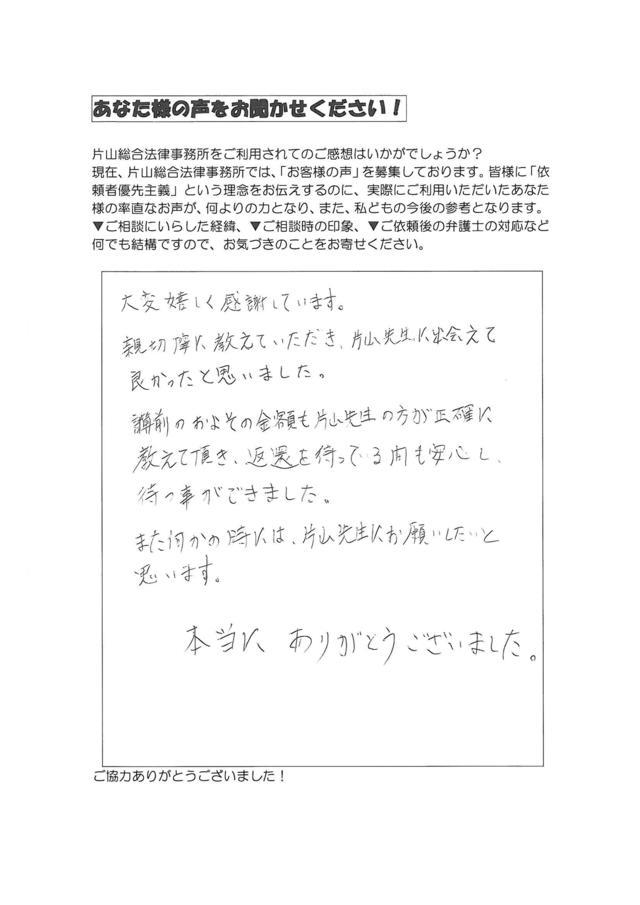 あなた様の声をお聞かせください！
片山総合法律事務所をご利用されてのご感想はいかがでしょうか？
現在、片山総合法律事務所では、「お客様の声」を募集しております。皆様に「依
頼者優先主義」という理念をお伝えするのに、実際にご利用いただいたあなた
様の率直なお声が、何よりの力となり、また、私どもの今後の参考となります。
▼ご相談にいらした経緯、▼ご相談時の印象、▼ご依頼後の弁護士の対応など
何でも結構ですので、お気づきのことをお寄せください。
大変嬉しく感謝しています。
親切に教えていただき、片山先生に出会えて
良かったと思いました。
前のおよその金額も片山先生の方が正確に
教えて頂き、返還を待っている間も安心し、
待つ事ができました。
また何かの時には、片山先生にお願いしたいと
思います。
本当に ありがとうございました。
ご協力ありがとうございました！